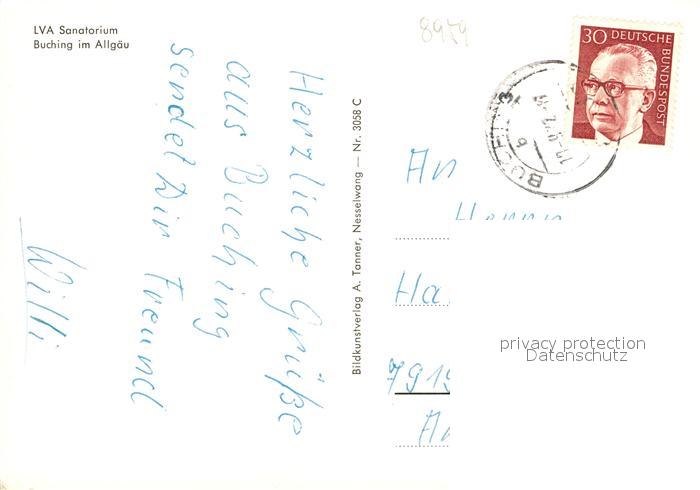 LVA Sanatorium
Buching im Allgäu
8959
30 DEUTSCHE
BUNDESPOST
Herzliche Grüße
aus Buching
sendet Dir Freund
Willi
Bildkunstverlag A. Tanner, Nesselwang — Nr. 3058 C
An
Ha
791
privacy protection
Datenschutz